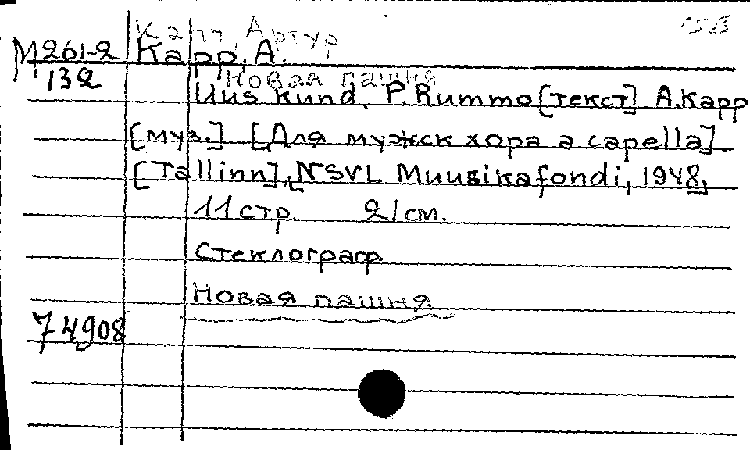 Капп, Артур
М 261-2 Kapp, A.
132 Новая пашня
Uus künd. P. Rummo [текст] A. Kapp
[муз.] [Для мужск хора a capella]
[Tallinn], NSVL Muusikafondi, 1948,
11 стр. 21 см.
Стеклограф.
Новая пашня
74908